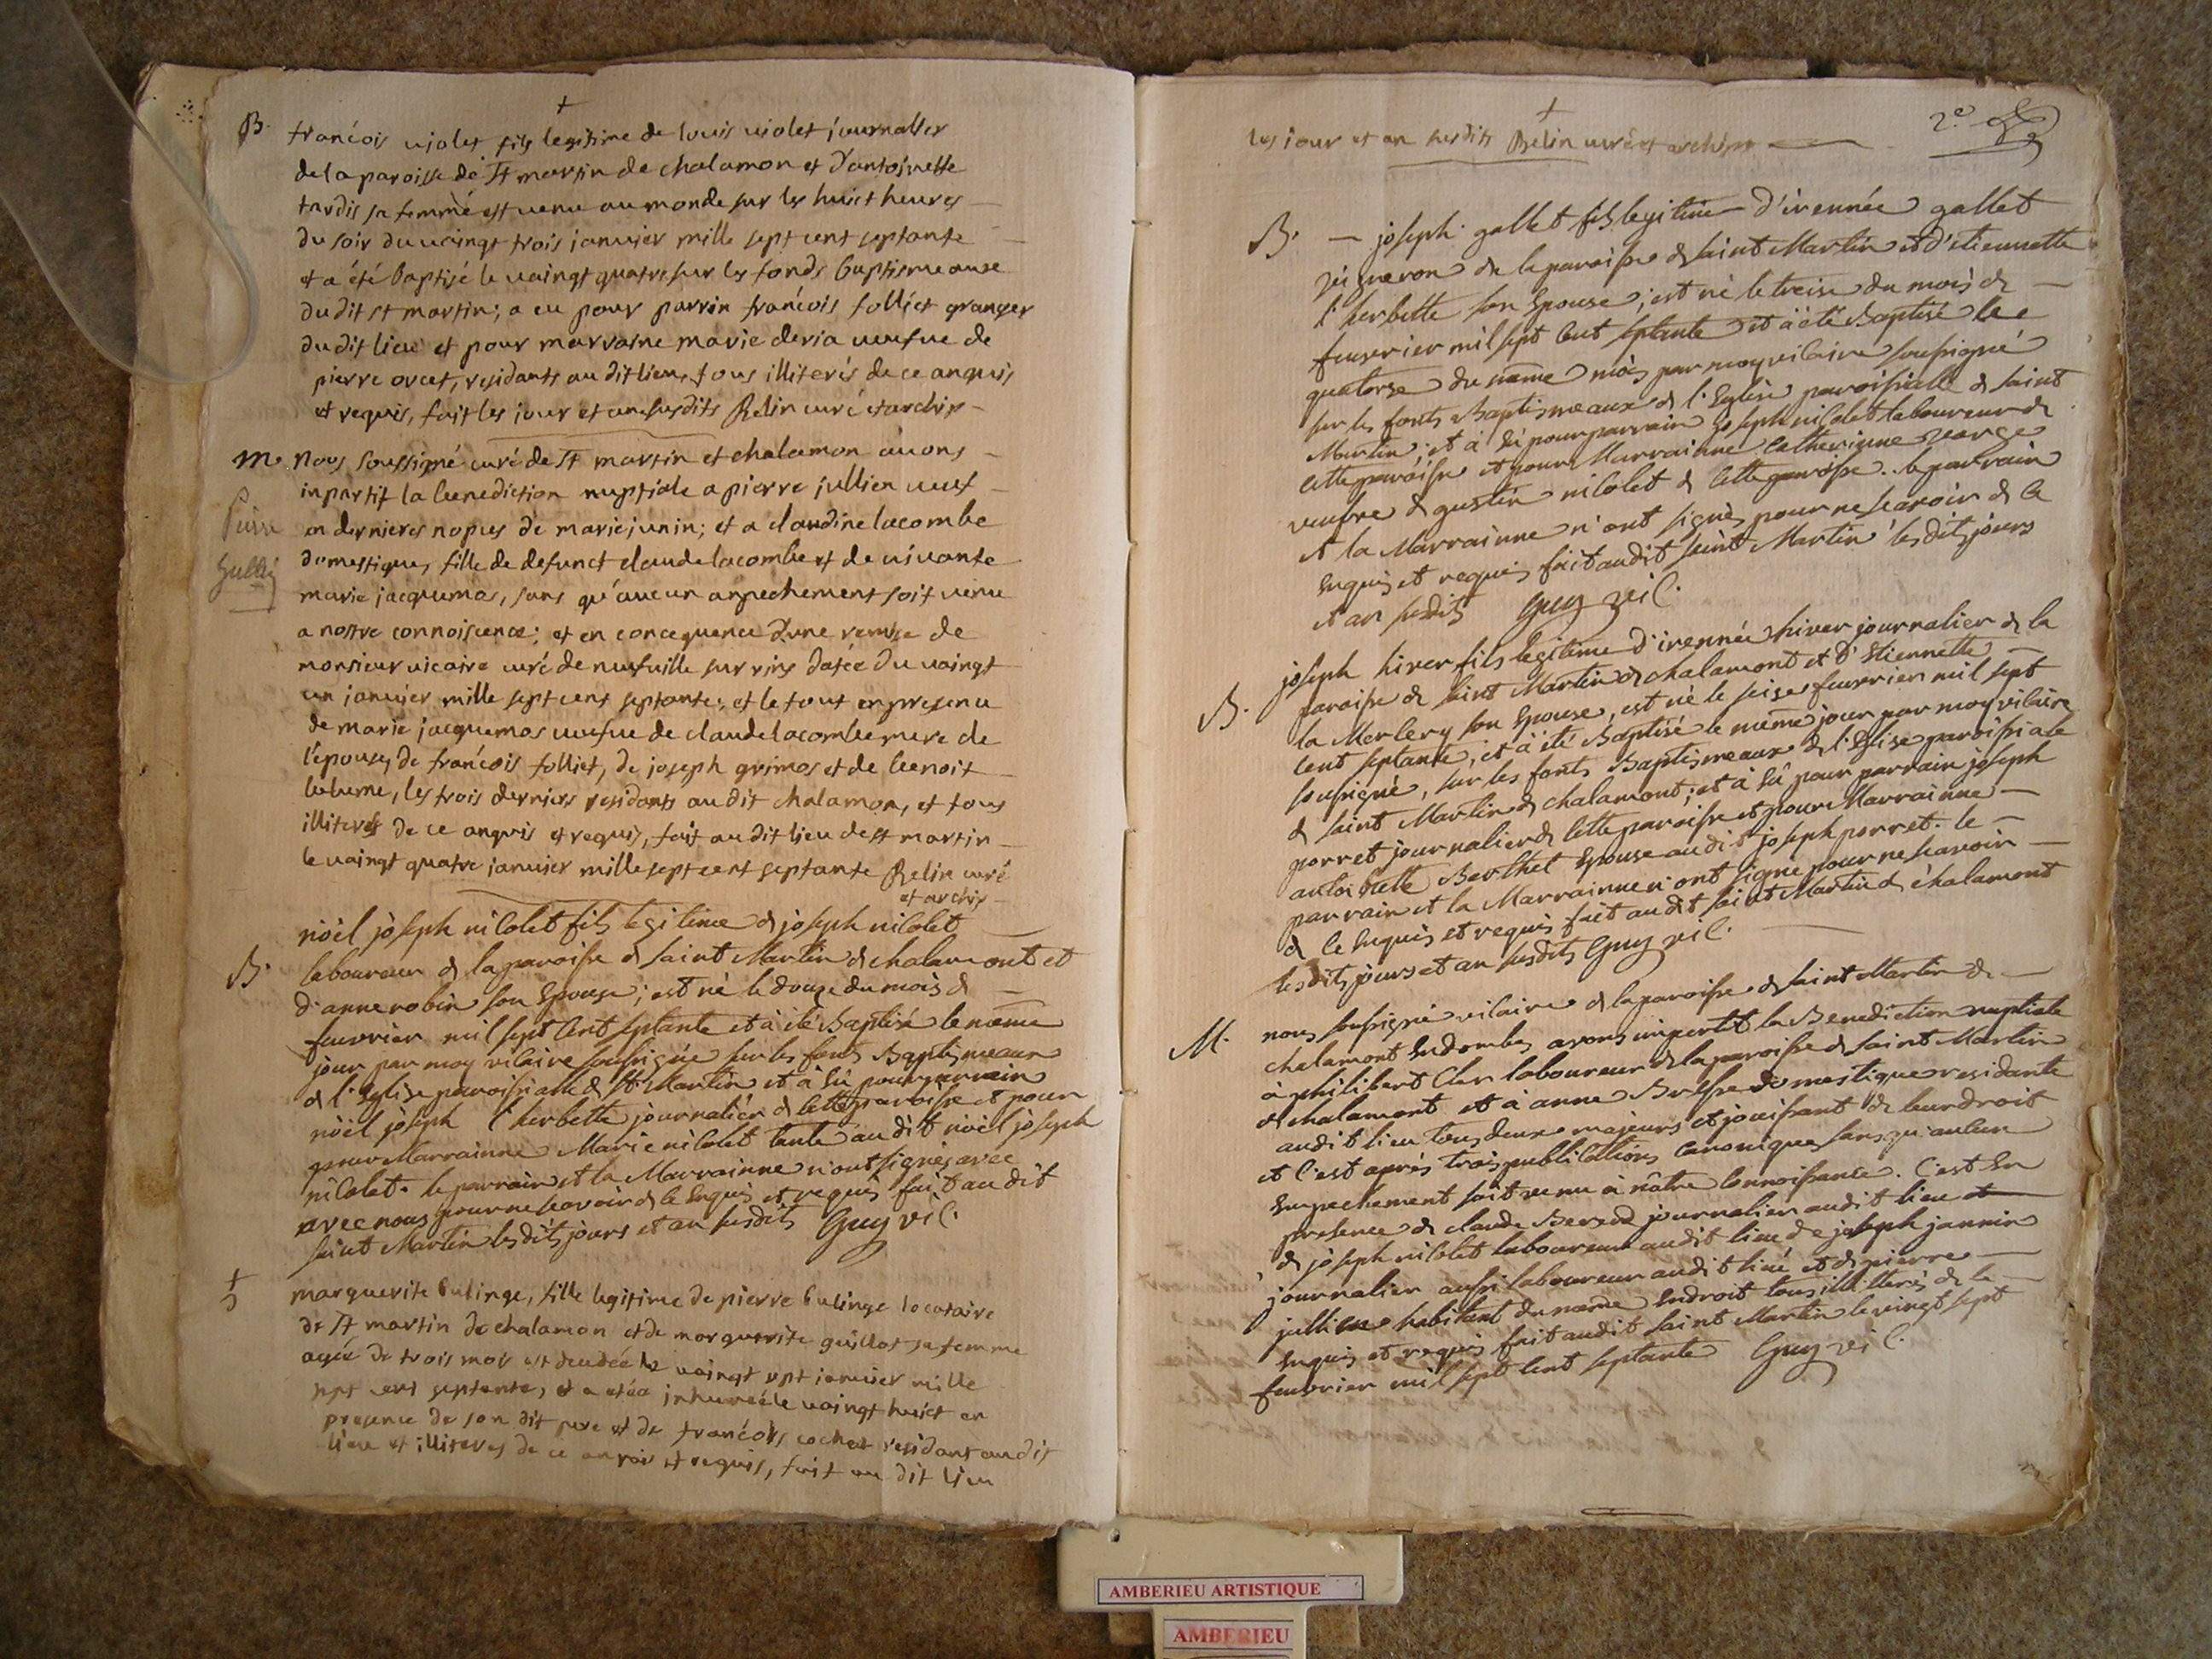 B. françois violet fils legitime de louis violet journallier
de la paroisse de st martin de chalamon et d'antoinette
tardis sa femme est venu au monde sur les huict heures
du soir du vaingt trois janvier mille sept cent septante
et a été baptisé le vaingt quatre sur les fonds baptismeause
du dit st martin; a eu pour parrin françois folliet granger
du dit lieu et pour marraine marie deria veufve de
pierre orcet, residants au dit lieu, tous illiterés de ce anquis
et requis, fait les jour et an susdits Relin curé et archip
m. Nous soussigné curé de st martin et chalamon avons
inpartit la benediction nuptiale a pierre jullien veuf
Pierre
en dernieres nopces de marie junin; et a claudine lacombe
domestique, fille de defunct claude lacombe et de vivante
marie jacquemas, sans qu'aucun anpechement soit venu
a nostre connoiscence; et en concequence d'une remise de
monsieur vicaire curé de nufville sur rins datée du vaingt
un janvier mille sept cent septante, et le tout en presence
de marie jacquemas veufve de claude lacombe mere de
l'epouse, de françois folliet, de joseph grimas et de benoit
les trois derniers residants au dit chalamon, et tous
illiterés de ce anquis et requis, fait au dit lieu de st martin
le vaingt quatre janvier mille sept cent septante Relin curé
et archip
noël joseph nicolet fils legitime de joseph nicolet
B. laboureur de la paroisse de saint Martin de chalamont et
d'anne robin son Epouse; est né le douze du mois de
feuvrier mil sept cent septante et à été Baptisé le meme
jour par moy vicaire soussignée sur les fonts Baptismeaux
de l'Eglise paroissialle de St Martin et à Eü pour parrain
noël joseph l'herbette journalier de cette paroisse et pour
pour Marrainne Marie nicolet tante audit noël joseph
nicolet. le parrain et la Marrainne n'ont signés avec
avec nous pour ne scavoir de ce Enquis et requis fait audit
saint Martin lesdits jours et an susdits Guy vic.
marguerite bulinge, fille legitime de pierre bulinge locataire
de st martin de chalamon et de marguerite guillot sa femme
agée de trois mois est decedée le vaingt sept janvier mille
sept cent septante, et a etée inhumée le vaingt huict en
presence de son dit pere et de françois cochet residant audit
lieu et illiteres de ce anquis et requis, fait au dit lieu
2e
les jour et an susdits Relin curé et archipr
B. joseph gallet fils legitime d'irennée gallet
vigneron de la paroisse de saint Martin et d'etiennette
l'herbette son Epouse; est né le treise du mois de
feuvrier mil sept cent septante et à été Baptisé le
quatorse du même mois par moy vicaire soussigné
sur les fonts Baptismeaux de l'Eglise paroissialle de saint
Martin; et à Eü pour parrain joseph nicolet laboureur de
cette paroisse et pour Marrainne catherinne
veufve de gustin nicolet de cette paroisse. le parrain
et la Marrainne n'ont signés pour ne scavoir de ce
Enquis et requis fait audit saint Martin lesdits jours
et an susdits Guy vic.
joseph hiver fils legitime d'irennée hiver journalier de la
B. paroisse de saint Martin de chalamont et d'Etiennette
la Merlery son Epouse, est né le seise feuvrier mil sept
cent septante, et à été Baptisé le même jour par moy vicaire
soussigné, sur les fonts Baptismeaux de l'Eglise paroissiale
de saint Martin de chalamont; et à Eü pour parrain joseph
porret journalier de cette paroisse et pour Marrainne
antoinette Berthet Epouse audit joseph porret. le
parrain et la Marrainne n'ont signé pour ne scavoir
de ce Enquis et requis fait audit saint Martin de chalamont
lesdits jours et an susdits Guy vic.
M. nous soussigné vicaire de la paroisse de saint Martin de
chalamont Endombes avons impartit la Benediction nuptiale
à philibert Cler laboureur de la paroisse de saint Martin
de chalamont et à anne domestique residante
audit lieu tous deux majeurs et jouissant de leur droit
et c'est après trois publications canoniques sans qu'aucun
Enpechement soit venu à nôtre connoissance. c'est En
presence de claude Berard journalier audit lieu et
de joseph nicolet laboureur audit lieu de joseph jannin
journalier aussi laboureur audit lieu et de pierre
jullien habitant du meme Endroit tous illitterés de ce
Enquis et requis fait audit saint Martin le vingt sept
feuvrier mil sept cent septante Guy vic.
AMBERIEU ARTISTIQUE
AMBERIEU